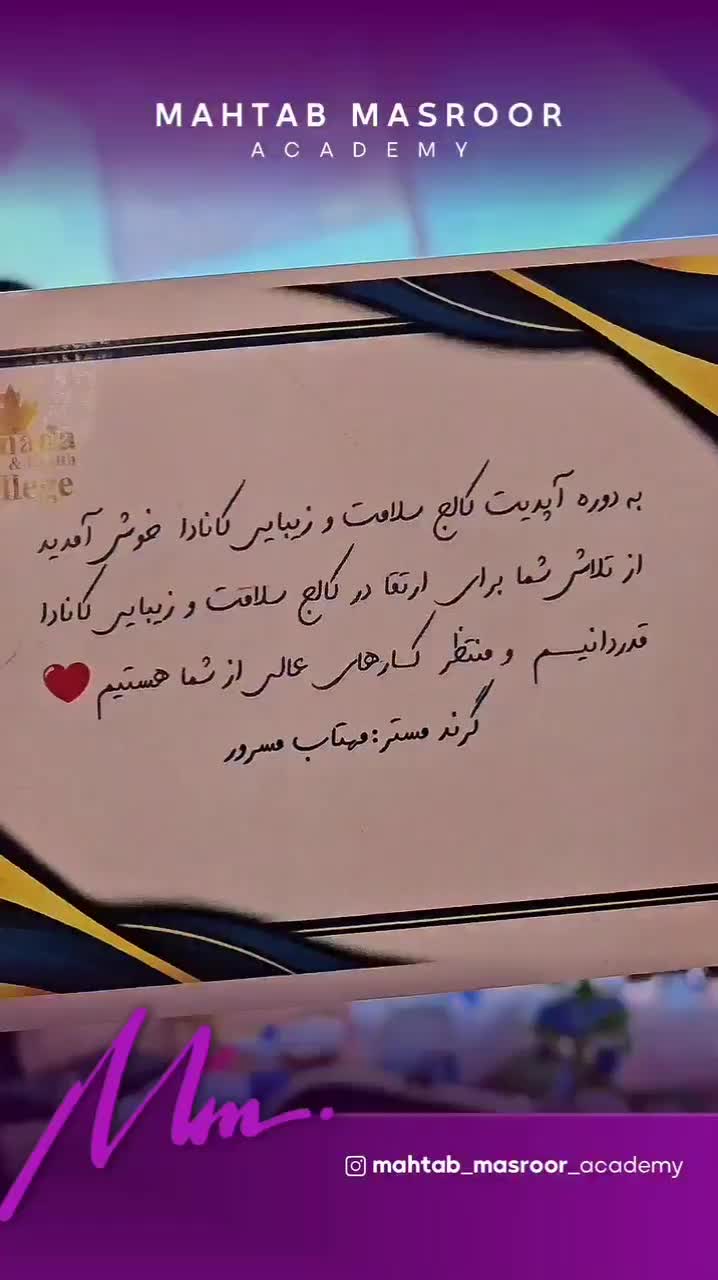 MAHTAB MASROOR
ACADEMY
nada
& Health
llege
به دوره آپدیت کالج سلامت و زیبایی کانادا خوش آمدید
از تلاش شما برای ارتقا در کالج سلامت و زیبایی کانادا
قدردانیم و منتظر کارهای عالی از شما هستیم ❤️
گرند مستر: مهتاب مسرور
Mm.
mahtab_masroor_academy